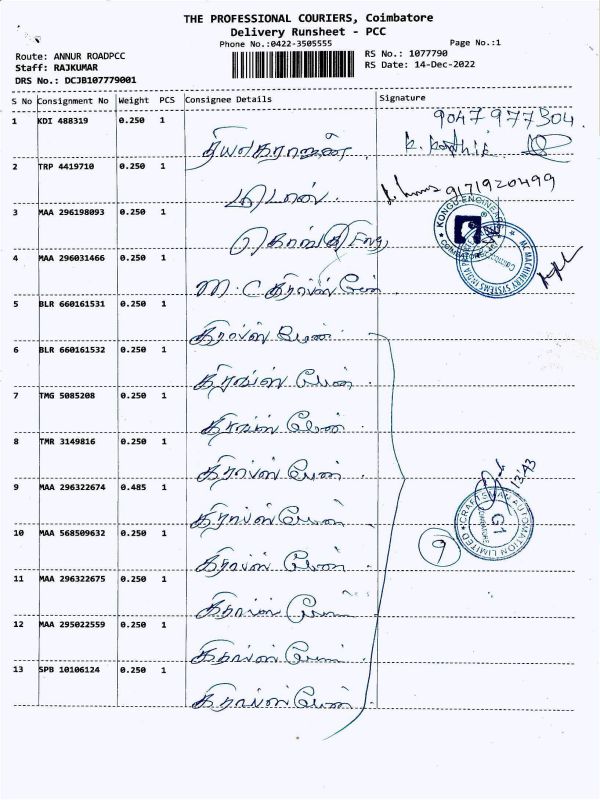 THE PROFESSIONAL COURIERS, Coimbatore
Delivery Runsheet - PCC
Phone No.:0422-3505555
Page No.:1
Route: ANNUR ROADPCC
RS No.: 1077790
Staff: RAJKUMAR
RS Date: 14-Dec-2022
DRS No.: DCJB107779001
S No Consignment No Weight PCS Consignee Details Signature
1 KDI 488319 0.250 1 9047977304.
தியாகராஜன்
2 TRP 4419710 0.250 1
9171920499
3 MAA 296198093 0.250 1
4 MAA 296031466 0.250 1
M. C கிராப்ஸ் மேன்
5 BLR 660161531 0.250 1
கிராப்ஸ் மேன்.
6 BLR 660161532 0.250 1
கிராப்ஸ் மேன்.
7 TMG 5085208 0.250 1
கிராப்ஸ் மேன்.
8 TMR 3149816 0.250 1
கிராப்ஸ் மேன்.
9 MAA 296322674 0.485 1 13:43
கிராப்ஸ் மேன்.
CRAFTSMAN AUTOMATION LIMITED
G1
COIMBATORE
9
10 MAA 568509632 0.250 1
கிராப்ஸ் மேன்.
11 MAA 296322675 0.250 1
கிராப்ஸ் மேன்
12 MAA 295022559 0.250 1
கிராப்ஸ் மேன்.
13 SPB 10106124 0.250 1
கிராப்ஸ் மேன்.